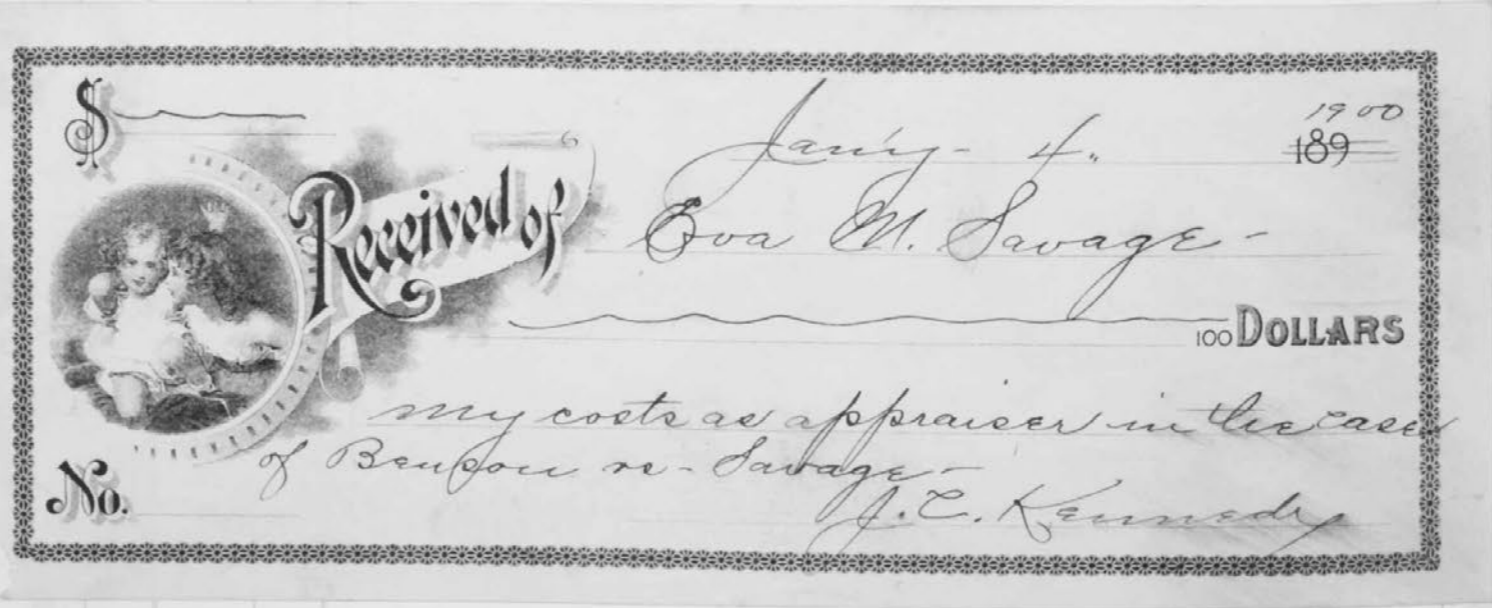 $
Jan'y - 4. 1900
189
Received of Eva M. Savage -
100 DOLLARS
my costs as appraiser in the case
of Benson vs - Savage -
No.
J. C. Kennedy